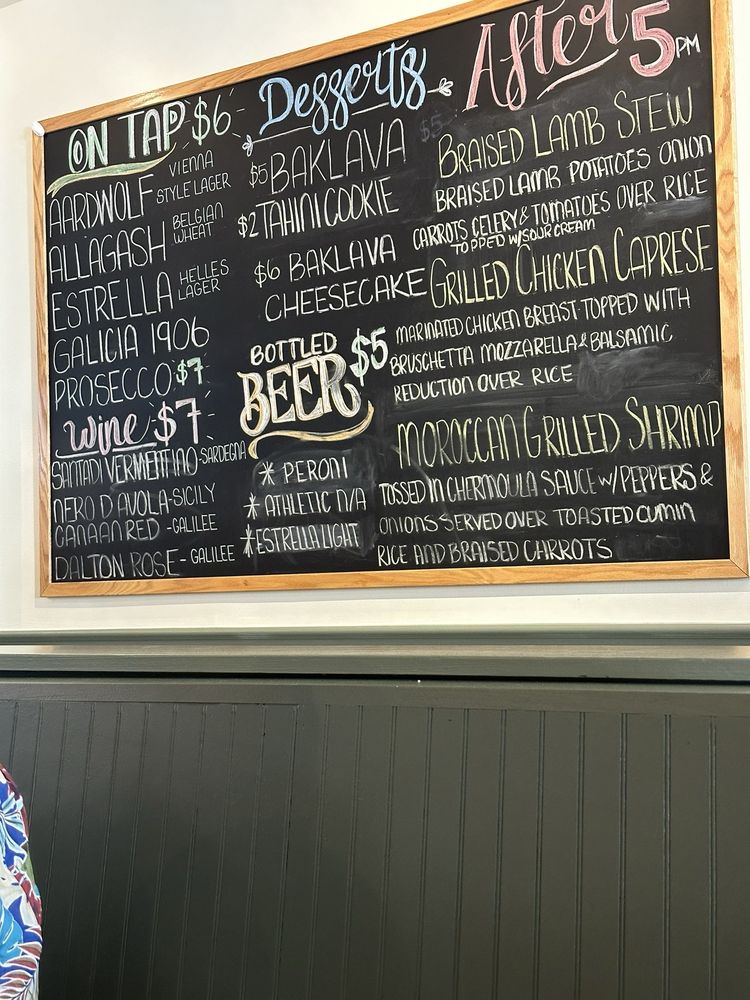 ON TAP $6
AARDWOLF VIENNA STYLE LAGER
ALLAGASH BELGIAN WHEAT
ESTRELLA HELLES LAGER
GALICIA 1906
PROSECCO $7
Wine $7
SANTADI VERMENTINO-SARDEGNA
NERO D AVOLA-SICILY
CANAAN RED -GALILEE
DALTON ROSE - GALILEE
Desserts
$5 BAKLAVA
$2 TAHINI COOKIE
$6 BAKLAVA
CHEESECAKE
BOTTLED
BEER $5
* PERONI
* ATHLETIC N/A
* ESTRELLA LIGHT
After 5 PM
BRAISED LAMB STEW
BRAISED LAMB POTATOES ONION
CARROTS CELERY & TOMATOES OVER RICE
TOPPED W/SOUR CREAM
GRILLED CHICKEN CAPRESE
MARINATED CHICKEN BREAST TOPPED WITH
BRUSCHETTA MOZZARELLA & BALSAMIC
REDUCTION OVER RICE
MOROCCAN GRILLED SHRIMP
TOSSED IN CHERMOULA SAUCE W/ PEPPERS &
ONIONS SERVED OVER TOASTED CUMIN
RICE AND BRAISED CARROTS